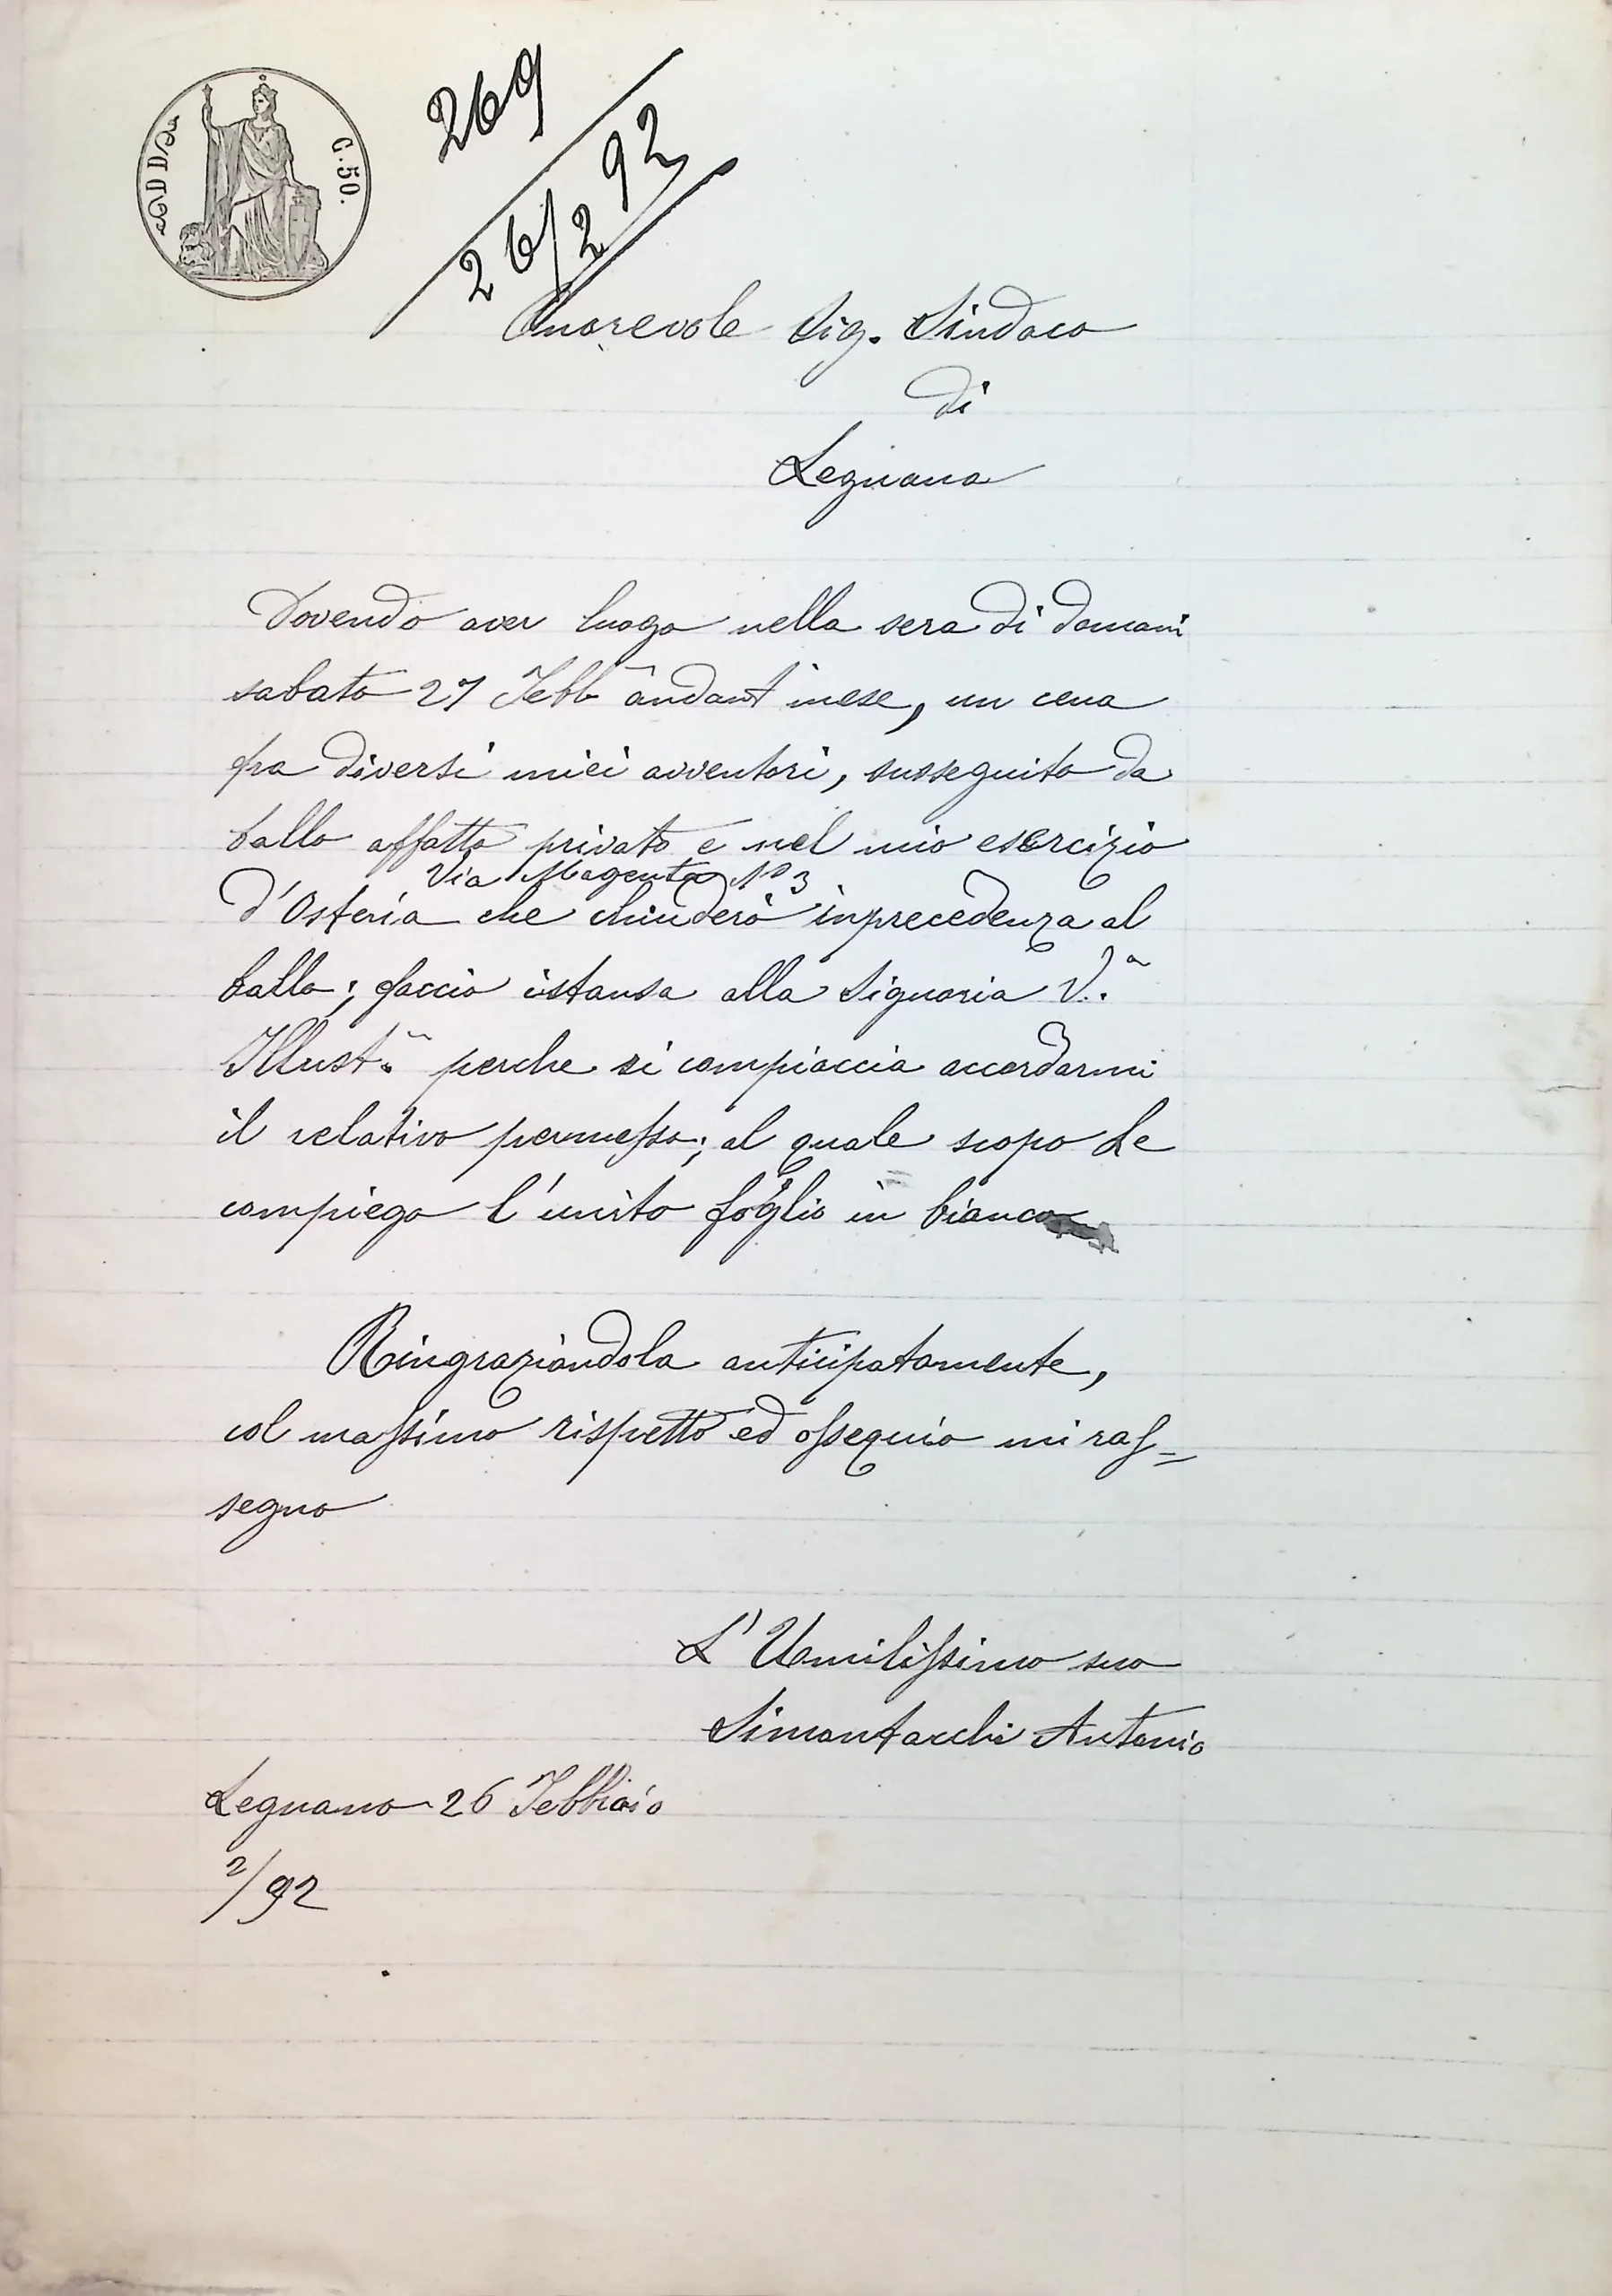 C. 50.
269
26/2 92
Onorevole Sig. Sindaco
di
Legnano
Dovendo aver luogo nella sera di domani
sabato 27 Febb andant mese, un cena
fra diversi miei avventori, susseguita da
ballo affatto privato e nel mio esercizio
Via Magenta No 3
d'Osteria che chiuderò inprecedenza al
ballo; faccio istansa alla Signoria V.a
Illust.a perche si compiaccia accordarmi
il relativo permesso; al quale scopo Le
compiego l'unito foglio in bianco
Ringraziandola anticipatamente,
col massimo rispetto ed ossequio mi ras=
segno
L'Umilissimo suo
Simontacchi Antonio
Legnano 26 Febbraio
2/92